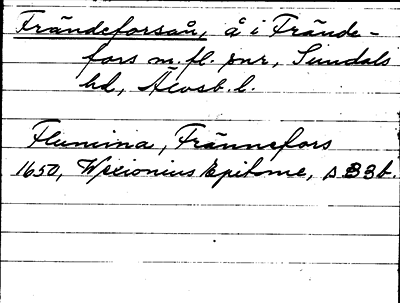 Frändeforsån, å i Frände-
fors m.fl. snr, Sundals
hd, Älvsb. l.
Flumina, Frännefors
1650, Wexionius Epitome, s B3b.